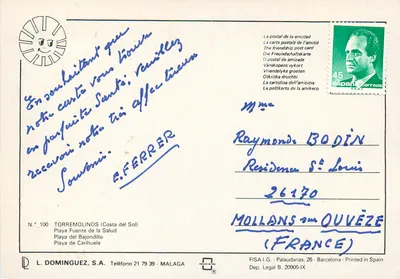 La postal de la amistad
La carte postale de l'amitié
The friendship post card
Die Freundschaftskarte
O postal de amizade
Vänskapens vykort
Vriendelijke groeten
La cartolina dell'amicizia
45
ESPAÑA
correos
En souhaitant que
notre carte vous trouve
en parfaite Santé, veuillez
recevoir notre très affectueux
Souvenir.
E. FERRER
Mme
Raymonde BODIN
Résidence St Louis
26170
MOLLANS sur OUVÈZE
(FRANCE)
N.º 100 TORREMOLINOS (Costa del Sol)
Playa Fuente de la Salud
Playa del Bajondillo
Playa de Carihuela
L. DOMINGUEZ, S.A. Teléfono 21 79 39 - MALAGA
FISA I.G. Palaudarias, 26 - Barcelona - Printed in Spain
Dep. Legal B. 20905-IX